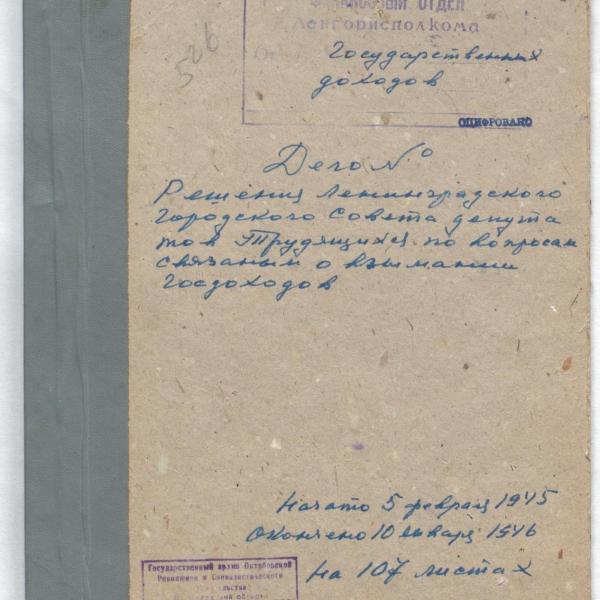 ФИНАНСОВЫЙ ОТДЕЛ
Ленгорисполкома
526
Государственных
доходов
ОЦИФРОВАНО
Дело №
Решения Ленинградского
Городского Совета депута
тов Трудящихся по вопросам
связаным о взымании
Госдоходов
Начато 5 февраля 1945
Окончено 10 января 1946
На 107 листах
Государственный архив Октябрьской
Революции и Социалистического